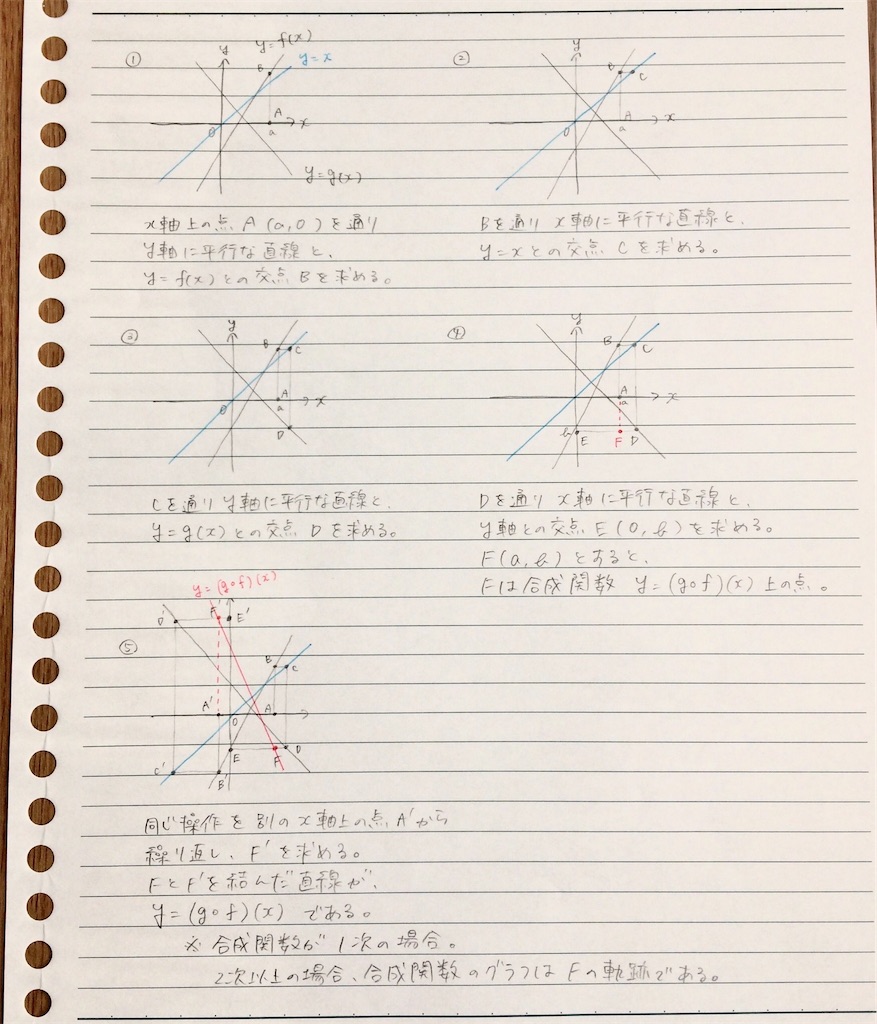 ①
y
y=f(x)
y=x
B
A
O
a
x
y=g(x)
x軸上の点 A(a,0)を通り
y軸に平行な直線と、
y=f(x)との交点 Bを求める。
②
y
B
C
A
O
a
x
Bを通り x軸に平行な直線と、
y=xとの交点 Cを求める。
③
y
B
C
A
O
a
x
D
Cを通り y軸に平行な直線と、
y=g(x)との交点 Dを求める。
④
y
B
C
A
a
x
b
E
F
D
Dを通り x軸に平行な直線と、
y軸との交点 E(0,b)を求める。
F(a,b)とすると、
Fは合成関数 y=(g∘f)(x)上の点。
⑤
y=(g∘f)(x)
D'
F'
E'
B
C
A'
O
A
E
F
D
C'
B'
同じ操作を別のx軸上の点A'から
繰り返し、F'を求める。
FとF'を結んだ直線が、
y=(g∘f)(x) である。
※ 合成関数が1次の場合。
2次以上の場合、合成関数のグラフは Fの軌跡である。